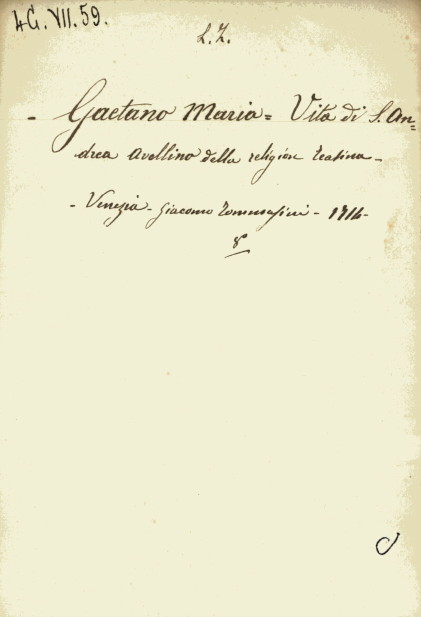 4G.VII.59.
L.Z.
- Gaetano Maria = Vita di S. An=
drea Avellino della religion Teatina -
- Venezia - Giacomo Tommasini - 1714 -
8°